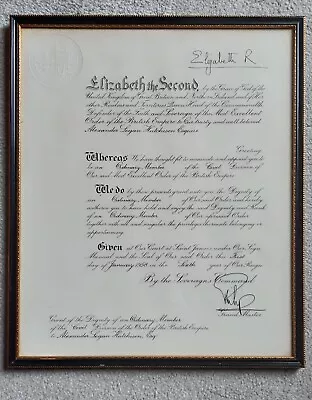 Elizabeth R
Elizabeth the Second, by the Grace of God of the
United Kingdom of Great Britain and Northern Ireland and of Her
other Realms and Territories Queen, Head of the Commonwealth,
Defender of the Faith and Sovereign of the Most Excellent
Order of the British Empire to Our trusty and well beloved
Alexander Logan Hutchison Esquire
Greeting
Whereas We have thought fit to nominate and appoint you to
be an Ordinary Member of the Civil Division of
Our said Most Excellent Order of the British Empire
We do by these presents grant unto you the Dignity of
an Ordinary Member of Our said Order and hereby
authorise you to have hold and enjoy the said Dignity and Rank
of an Ordinary Member of Our aforesaid Order
together with all and singular the privileges thereunto belonging or
appertaining.
Given at Our Court at Saint James's under Our Sign
Manual and the Seal of Our said Order this First
day of January 1958 in the Sixth year of Our Reign
By the Sovereign's Command.
Grand Master
Grant of the Dignity of an Ordinary Member
of the Civil Division of the Order of the British Empire
to Alexander Logan Hutchison, Esq.